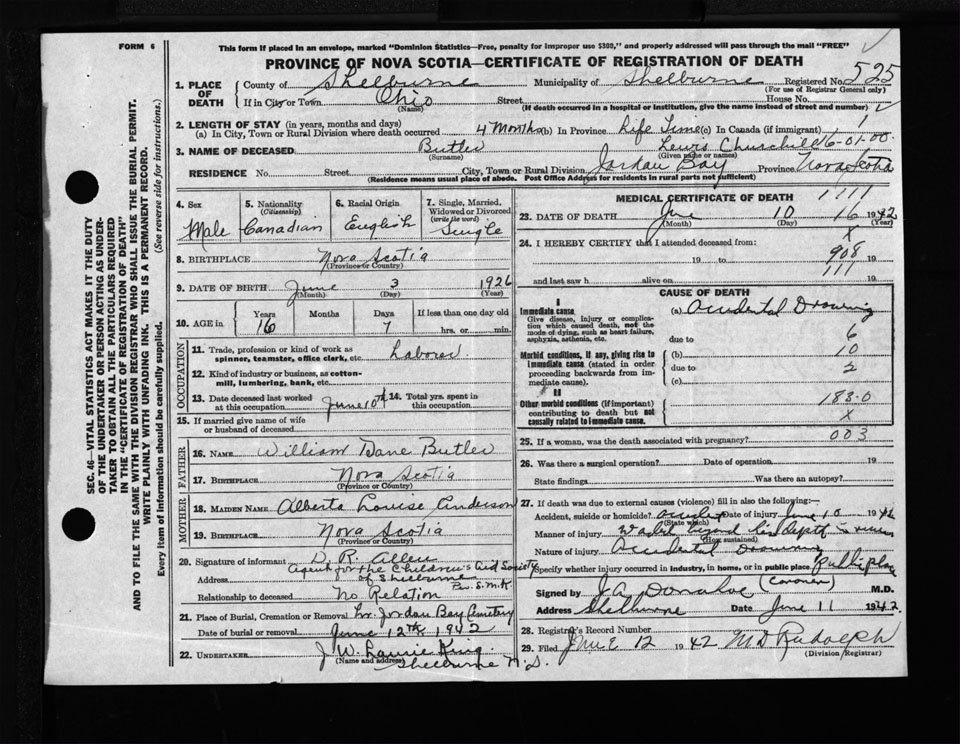 FORM 6
This form if placed in an envelope, marked "Dominion Statistics—Free, penalty for improper use $300," and properly addressed will pass through the mail "FREE"
PROVINCE OF NOVA SCOTIA—CERTIFICATE OF REGISTRATION OF DEATH
SEC. 46—VITAL STATISTICS ACT MAKES IT THE DUTY
OF THE UNDERTAKER OR PERSON ACTING AS UNDER-
TAKER TO OBTAIN ALL THE PARTICULARS REQUIRED
IN THE "CERTIFICATE OF REGISTRATION OF DEATH"
AND TO FILE THE SAME WITH THE DIVISION REGISTRAR WHO SHALL ISSUE THE BURIAL PERMIT.
WRITE PLAINLY WITH UNFADING INK. THIS IS A PERMANENT RECORD.
Every item of information should be carefully supplied. (See reverse side for instructions.)
1. PLACE OF DEATH
County of Shelburne Municipality of Shelburne Registered No. 525
(For use of Registrar General only)
If in City or Town Ohio Street House No.
(Name) (If death occurred in a hospital or institution, give the name instead of street and number)
2. LENGTH OF STAY (in years, months and days)
(a) In City, Town or Rural Division where death occurred 4 Months (b) In Province Life Time (c) In Canada (if immigrant)
1
3. NAME OF DECEASED Butler Lewis Churchill 16-01-00
(Surname) (Given name or names)
RESIDENCE No. Street City, Town or Rural Division Jordan Bay Province Nova Scotia
(Residence means usual place of abode. Post Office Address for residents in rural parts not sufficient)
4. Sex Male
5. Nationality (Citizenship) Canadian
6. Racial Origin English
7. Single, Married, Widowed or Divorced (write the word) Single
8. BIRTHPLACE Nova Scotia
(Province or Country)
9. DATE OF BIRTH June 3 1926
(Month) (Day) (Year)
10. AGE in Years 16 Months Days 7 If less than one day old hrs. or min.
OCCUPATION
11. Trade, profession or kind of work as spinner, teamster, office clerk, etc. Laborer
12. Kind of industry or business, as cotton-mill, lumbering, bank, etc.
13. Date deceased last worked at this occupation June 10th 14. Total yrs. spent in this occupation
15. If married give name of wife or husband of deceased
FATHER
16. NAME William Dane Butler
17. BIRTHPLACE Nova Scotia
(Province or Country)
MOTHER
18. MAIDEN NAME Alberta Louise Anderson
19. BIRTHPLACE Nova Scotia
(Province or Country)
20. Signature of informant D. R. Allen
Agent for the Children's Aid Society
Address of Shelburne
Per. S.M.K
Relationship to deceased No Relation
21. Place of Burial, Cremation or Removal Lr. Jordan Bay Cemetery
Date of burial or removal June 12th 1942
22. UNDERTAKER J. W. Laurie King
(Name and address) Shelburne N.S.
MEDICAL CERTIFICATE OF DEATH
1111
23. DATE OF DEATH June 10 16 1942
(Month) (Day)
X
24. I HEREBY CERTIFY that I attended deceased from:
908
19 to 19
111
and last saw h alive on 19
CAUSE OF DEATH
I
Immediate cause. (a) Accidental Drowning
Give disease, injury or complication which caused death, not the mode of dying, such as heart failure, asphyxia, asthenia, etc.
due to 6
Morbid conditions, if any, giving rise to immediate cause (stated in order proceeding backwards from immediate cause).
(b) 10
due to 2
(c)
II
Other morbid conditions (if important) contributing to death but not causally related to immediate cause.
183.0
X
25. If a woman, was the death associated with pregnancy? 003
26. Was there a surgical operation? Date of operation 19
State findings Was there an autopsy?
27. If death was due to external causes (violence) fill in also the following:—
Accident, suicide or homicide? accident Date of injury June 10 1942
(State which)
Manner of injury Waded beyond his depth in river
(How sustained)
Nature of injury Accidental Drowning
Specify whether injury occurred in industry, in home, or in public place Public place
Signed by J.A. Donahoe (Coroner) M.D.
Address Shelburne Date June 11 1942.
28. Registrar's Record Number
29. Filed June 12 1942 M D Rudolph
(Division Registrar)